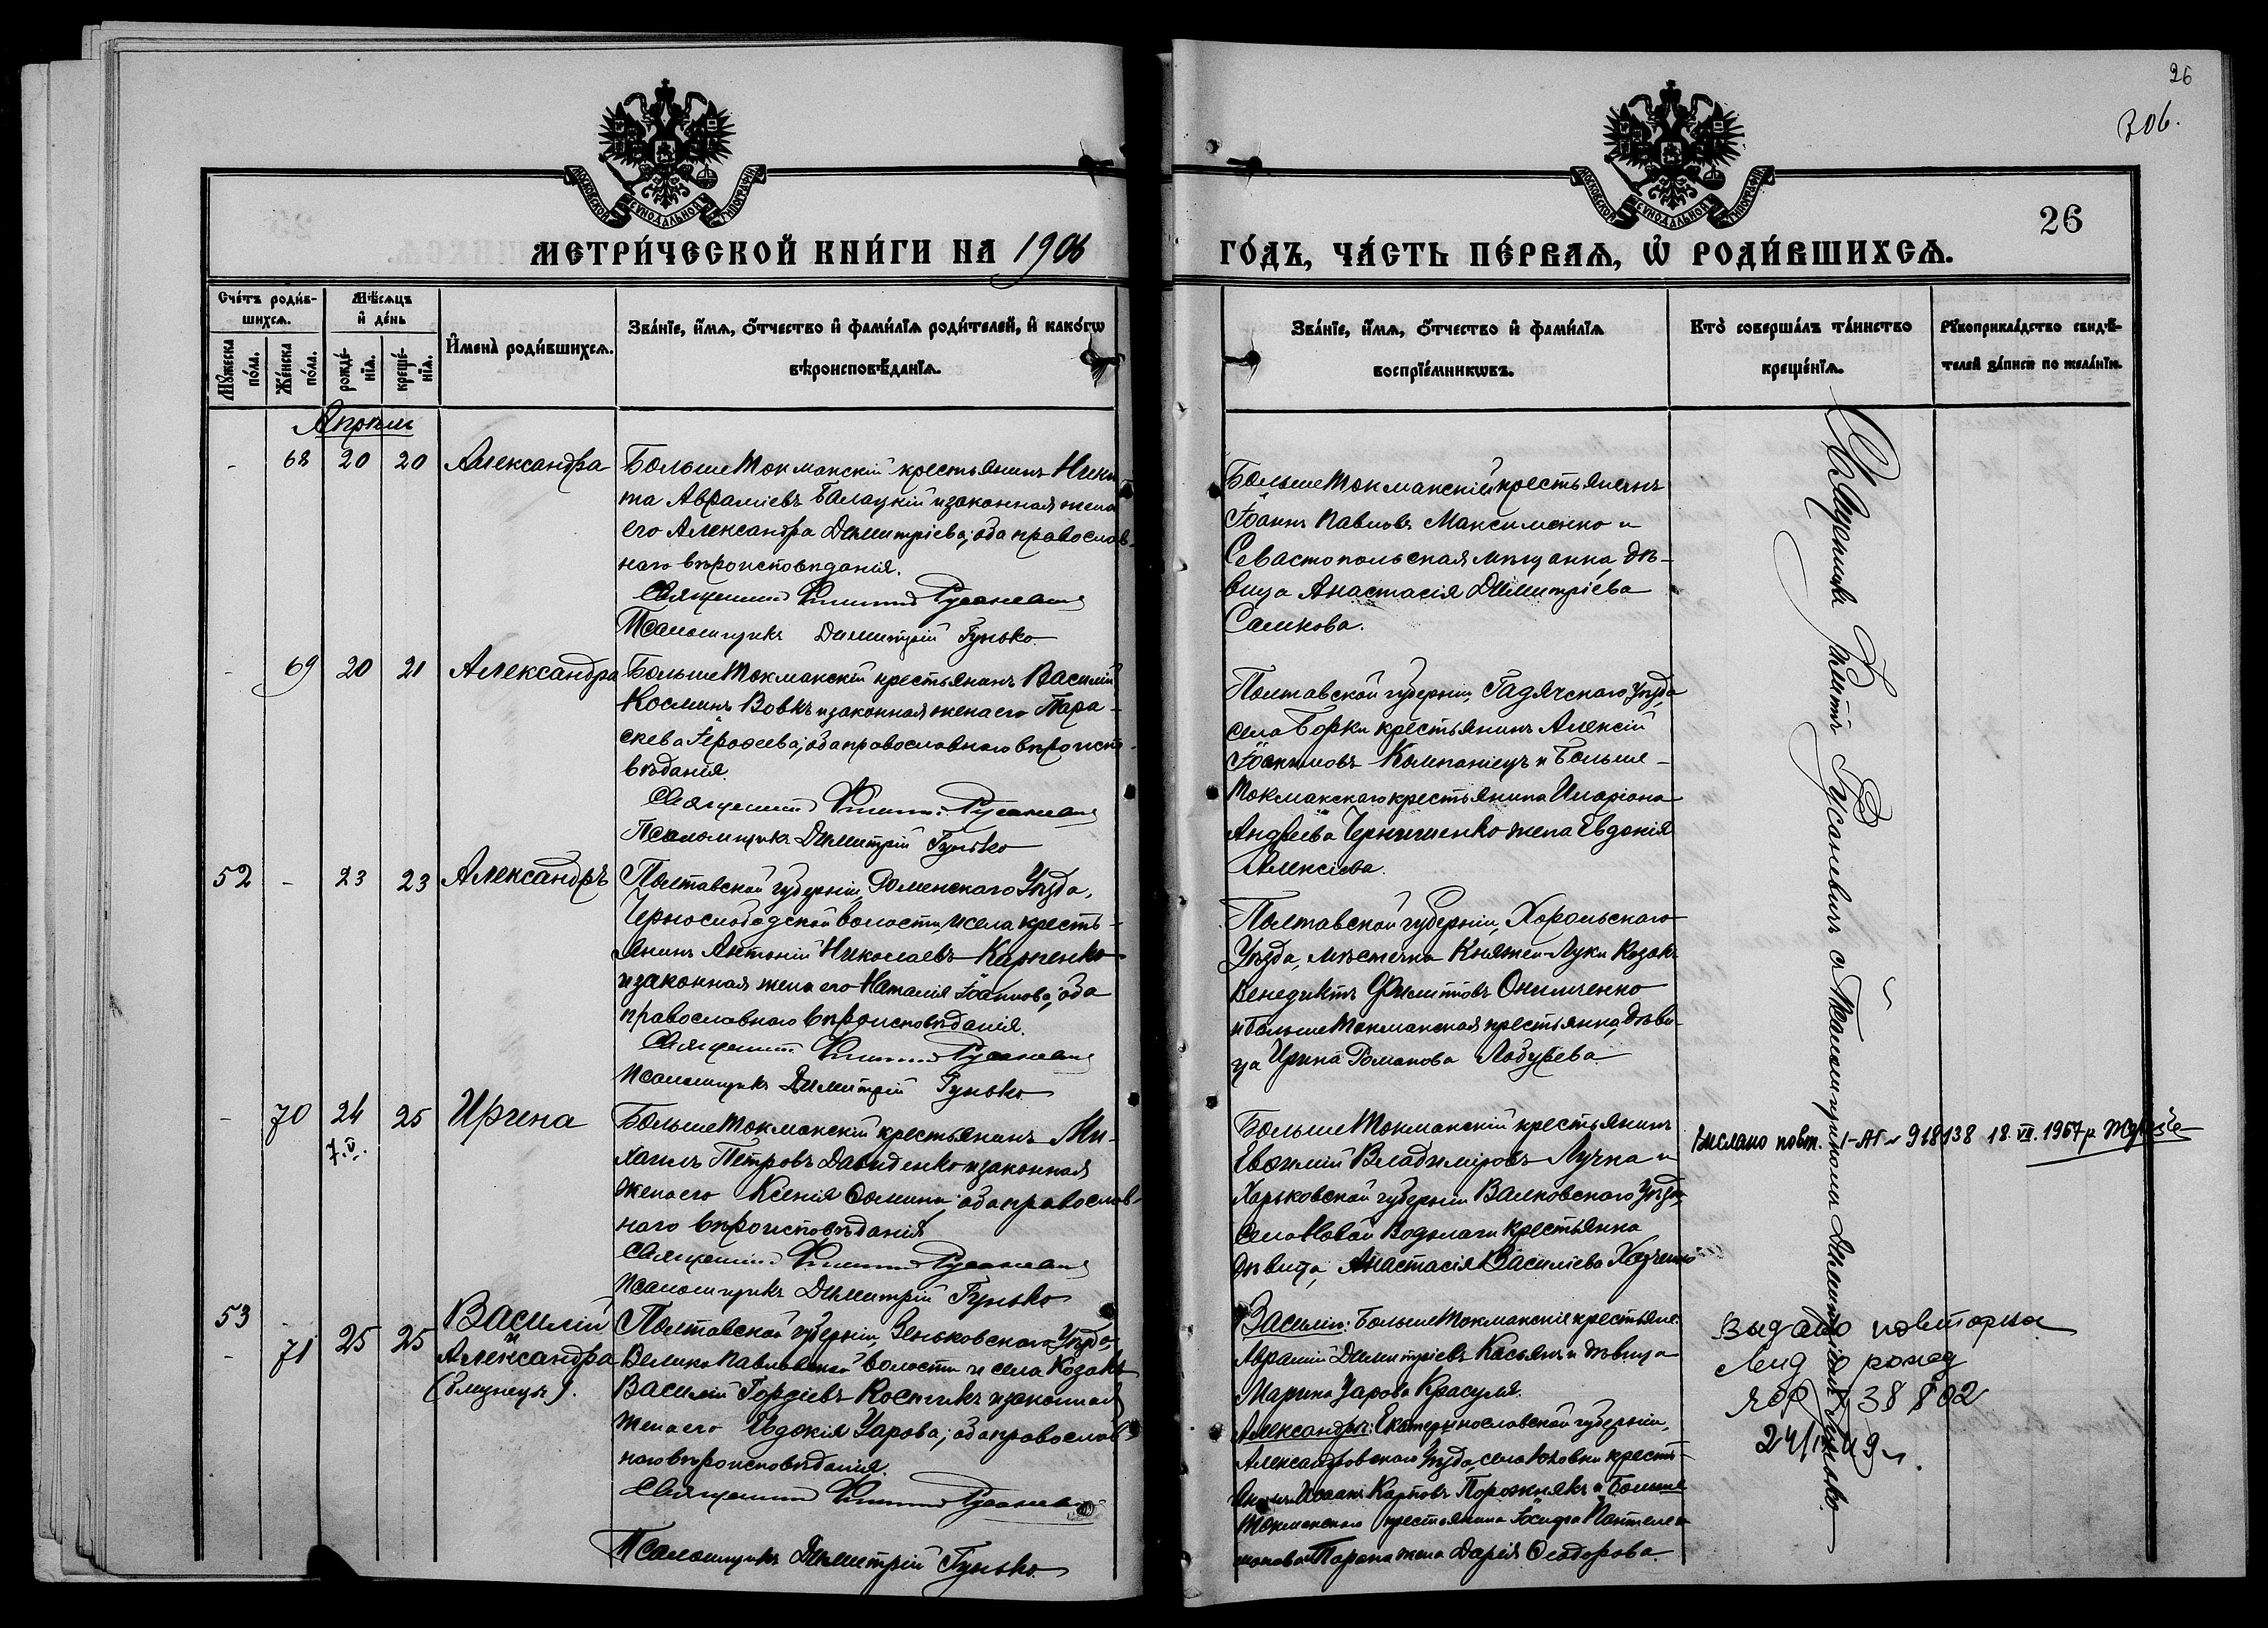 26
306.
МОСКОВСКОЙ СѴНОДАЛЬНОЙ ТИПОГРАФІИ
МОСКОВСКОЙ СѴНОДАЛЬНОЙ ТИПОГРАФІИ
26
МЕТРИ́ЧЕСКОЙ КНИ́ГИ НА 1906
ГО́ДЪ, ЧА́СТЬ ПЕ́РВАѦ, Ѡ҆ РОДИ́ВШИХСѦ.
Сче́тъ роди́в-
шихсѧ.
Мꙋ́жеска по́ла.
Же́нска по́ла.
Мѣ́сѧцъ
и҆ де́нь
рожде́-
нїѧ.
креще́-
нїѧ.
И҆мена̀ роди́вшихсѧ.
Зва́нїе, и҆́мѧ, ѻ҆́тчество и҆ фами́лїѧ роди́телей, и҆ како́гѡ
вѣроисповѣ́данїѧ.
Зва́нїе, и҆́мѧ, ѻ҆́тчество и҆ фами́лїѧ
воспрїе́мникѡвъ.
Кто̀ соверша́лъ та́инство
креще́нїѧ.
Рꙋкоприкла́дство свидѣ́-
телей за́писи по жела́нїю.
Апрѣль
- 68 20 20 Александра
БольшеТокмакскій крестьянинъ Ники-
та Авраміевъ Балацкій и законная жена
его Александра Димитріева; оба православ-
наго вѣроисповѣданія.
Священникъ Русаневичъ
Псаломщикъ Димитрій Гунько
БольшеТокмакскій крестьянинъ
Іоаннъ Павловъ Максименко и
Севастопольская мѣщанка, дѣ-
вица Анастасія Димитріева
Салкова.
- 69 20 21 Александра
БольшеТокмакскій крестьянинъ Василій
Косминъ Вовкъ и законная жена его Пара-
скева Іероѳеева; оба православнаго вѣроиспо-
вѣданія.
Священникъ Русаневичъ
Псаломщикъ Димитрій Гунько
Полтавской губерніи, Гадячскаго уѣзда,
села Борки крестьянинъ Алексій
Іоакимовъ Компаніецъ и Больше-
Токмакскаго крестьянина Иларіона
Андреева Чернышенко жена Евдокія
Алексіева.
52 - 23 23 Александръ
Полтавской губерніи, Роменскаго Уѣзда,
Чернослободской волости и села кресть-
янинъ Антоній Николаевъ Карпенко
и законная жена его Наталія Іоаннова; оба
православнаго вѣроисповѣданія.
Священникъ Русаневичъ
Псаломщикъ Димитрій Гунько
Полтавской губерніи, Хорольскаго
Уѣзда, мѣстечка Княжей-Луки козакъ
Венедиктъ Филипповъ Онипченко
и БольшеТокмакская крестьянка, дѣви-
ца Ирина Романова Лобурева
- 70 24 25 Ирина
7.V.
БольшеТокмакскій крестьянинъ Ми-
хаилъ Петровъ Давиденко и законная
жена его Ксенія Ѳомина; оба православ-
наго вѣроисповѣданія
Священникъ Русаневичъ
Псаломщикъ Димитрій Гунько
БольшеТокмакскій крестьянинъ
Евѳимій Владиміровъ Лучка и
Харьковской губерніи Валковскаго Уѣзда,
села Новой Водолаги крестьянка
дѣвица, Анастасія Василіева
Вислано повт. 1-АП № 918138 18.VII.1967р
53 - 71 25 25 Василій
и
Александра
(близнецы).
Полтавской губерніи, Зеньковскаго Уѣзда,
ВеликоПавловской волости и села Козакъ
Василій Гордіевъ Костикъ и законная
жена его Евдокія Уарова; оба православ-
наго вѣроисповѣданія.
Священникъ Русаневичъ
Псаломщикъ Димитрій Гунько.
Василія: БольшеТокмакскіе крестьяне:
Аврамій Димитріевъ Касьянъ и дѣвица
Марина Уарова Красуля.
Александры: Екатеринославской губерніи,
Александровскаго Уѣзда, села Юловки кресть-
янинъ Исаакъ Карповъ Порожнякъ и Больше
Токмакскаго крестьянина Іосифа Пантелеи-
монова жена Дарія Ѳеодорова.
Выдано повторна
38802
Священникъ Русаневичъ съ Псаломщикомъ Димитріемъ Гунько.